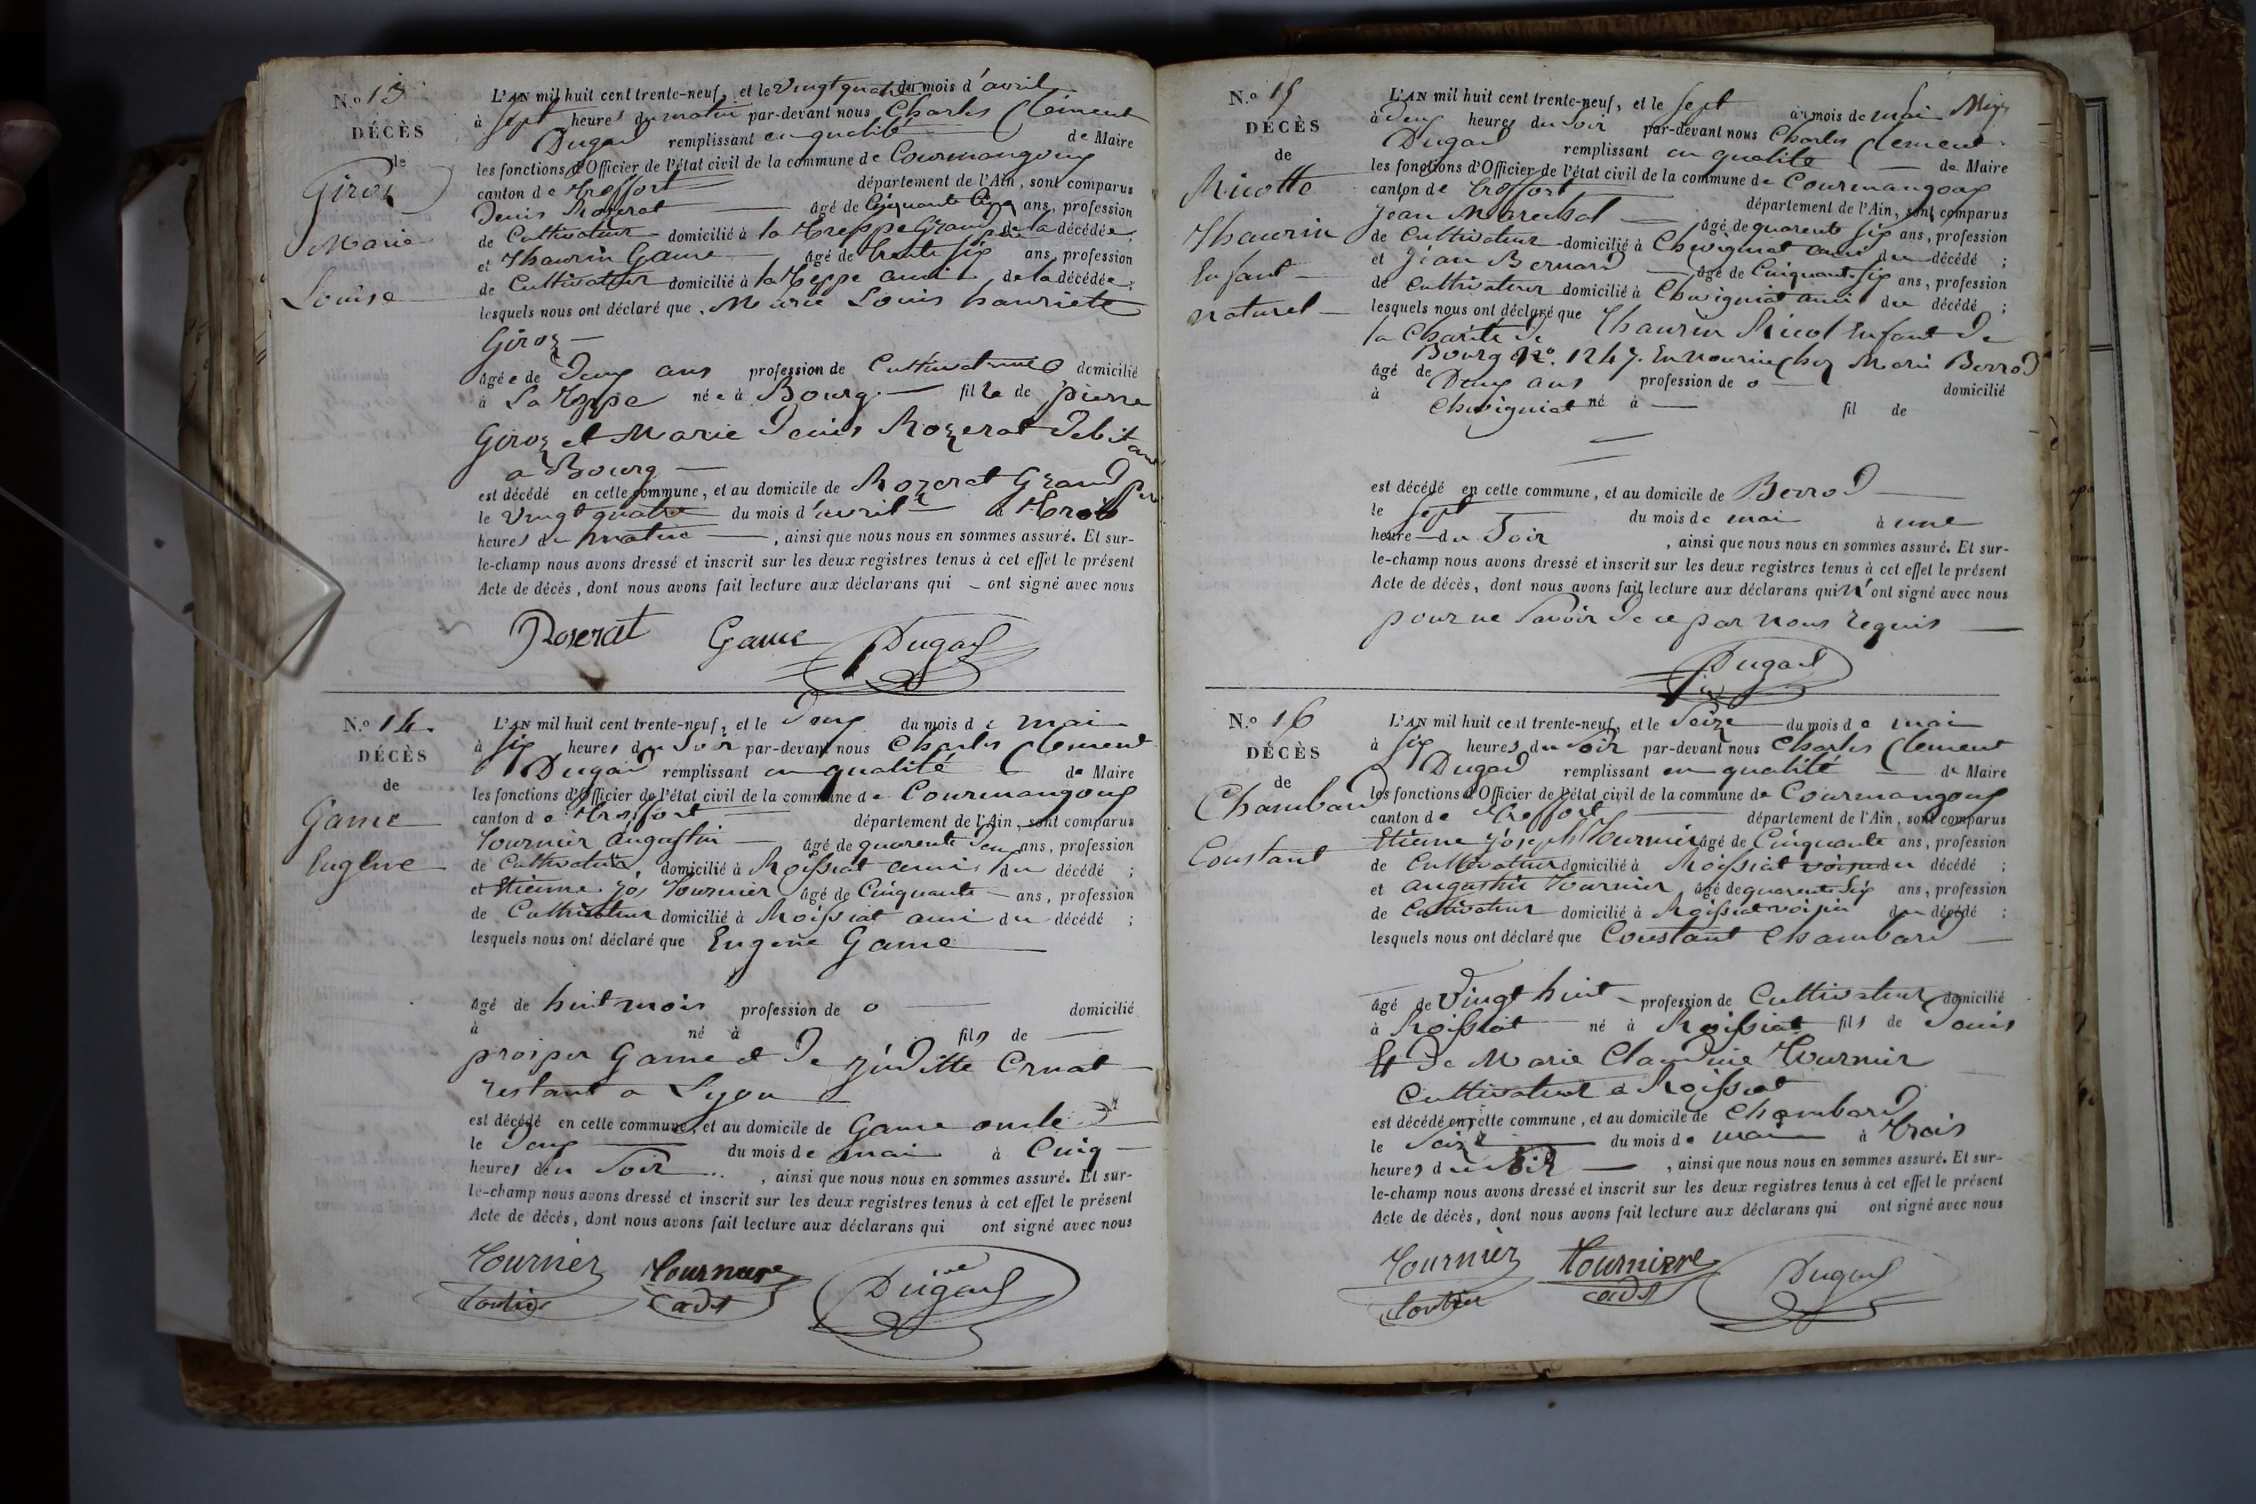 N.º 13
DÉCÈS
de
Giroz
Marie
Louise
L'AN mil huit cent trente-neuf, et le vingt quatre du mois d'avril
à sept heures du matin par-devant nous Charles Clément
Dugad remplissant en qualité de Maire
les fonctions d'Officier de l'état civil de la commune de Courmangoux
canton de Treffort département de l'Ain, sont comparus
Denis Rozerat âgé de Cinquante Cinq ans, profession
de Cultivateur domicilié à la Teppe Grand père de la décédée;
et Thaurin Game âgé de trente six ans, profession
de Cultivateur domicilié à la Teppe ami de la décédée;
lesquels nous ont déclaré que Marie Louis hanriete
Giroz
âgée de Deux ans profession de Cultivatrice domicilié
à La Teppe née à Bourg fille de pierre
Giroz et Marie Denis Rozerat Debitant
a Bourg
est décédé en cette commune, et au domicile de Rozerat Grand père
le vingt quatre du mois d'avril à Trois
heures du matin, ainsi que nous nous en sommes assuré. Et sur-
le-champ nous avons dressé et inscrit sur les deux registres tenus à cet effet le présent
Acte de décès, dont nous avons fait lecture aux déclarans qui ont signé avec nous
Roserat Game Dugad
N.º 14
DÉCÈS
de
Game
Eugène
L'AN mil huit cent trente-neuf, et le Deux du mois de mai
à six heures du Soir par-devant nous Charles Clement
Dugad remplissant en qualité de Maire
les fonctions d'Officier de l'état civil de la commune de Courmangoux
canton de Treffort département de l'Ain, sont comparus
Tournier augustin âgé de quarente ans, profession
de Cultivateur domicilié à Roissiat ami du décédé;
et Etienne jos Tournier âgé de Cinquante ans, profession
de Cultivateur domicilié à Roissiat ami du décédé;
lesquels nous ont déclaré que Eugene Game
âgé de huit mois profession de o domicilié
à né à fils de
prosper Game et De Juditte Cruat
restant a Lyon
est décédé en cette commune, et au domicile de Game oncle
le Deux du mois de mai à Cinq
heures du Soir, ainsi que nous nous en sommes assuré. Et sur-
le-champ nous avons dressé et inscrit sur les deux registres tenus à cet effet le présent
Acte de décès, dont nous avons fait lecture aux déclarans qui ont signé avec nous
Tournier Tournier Dugad
N.º 15
DÉCÈS
de
Ricotte
Thaurin
Enfant
naturel
L'AN mil huit cent trente-neuf, et le sept du mois de mai
à Deux heures du Soir par-devant nous Charles Clement
Dugad remplissant en qualité de Maire
les fonctions d'Officier de l'état civil de la commune de Courmangoux
canton de Treffort département de l'Ain, sont comparus
Jean Marechal âgé de quarente six ans, profession
de Cultivateur domicilié à Chevigniat ami du décédé;
et Jean Bernard âgé de Cinquante six ans, profession
de Cultivateur domicilié à Chevigniat ami du décédé;
lesquels nous ont déclaré que Thaurin Ricot Enfant de
la Charité de
Bourg No. 1247. En nourrice chez Marie Berrod
âgé de Deux ans profession de o domicilié
à Chevigniat né à fil de
est décédé en cette commune, et au domicile de Berrod
le sept du mois de mai à une
heure du Soir, ainsi que nous nous en sommes assuré. Et sur-
le-champ nous avons dressé et inscrit sur les deux registres tenus à cet effet le présent
Acte de décès, dont nous avons fait lecture aux déclarans qui n'ont signé avec nous
pour ne savoir de ce par nous requis
Dugad
N.º 16
DÉCÈS
de
Chambard
Constant
L'AN mil huit cent trente-neuf, et le Seize du mois de mai
à six heures du Soir par-devant nous Charles Clement
Dugad remplissant en qualité de Maire
les fonctions d'Officier de l'état civil de la commune de Courmangoux
canton de Treffort département de l'Ain, sont comparus
Etienne joseph Tournier âgé de Cinquante ans, profession
de Cultivateur domicilié à Roissiat voisin du décédé;
et augustin Tournier âgé de quarente six ans, profession
de Cultivateur domicilié à Roissiat voisin du décédé;
lesquels nous ont déclaré que Constant Chambard
âgé de Vingt huit profession de Cultivateur domicilié
à Roissiat né à Roissiat fils de Denis
Et De Marie Claudine Tournier
Cultivateur a Roissiat
est décédé en cette commune, et au domicile de Chambard
le Seize du mois de mai à Trois
heures du Soir, ainsi que nous nous en sommes assuré. Et sur-
le-champ nous avons dressé et inscrit sur les deux registres tenus à cet effet le présent
Acte de décès, dont nous avons fait lecture aux déclarans qui ont signé avec nous
Tournier Tournier Dugad